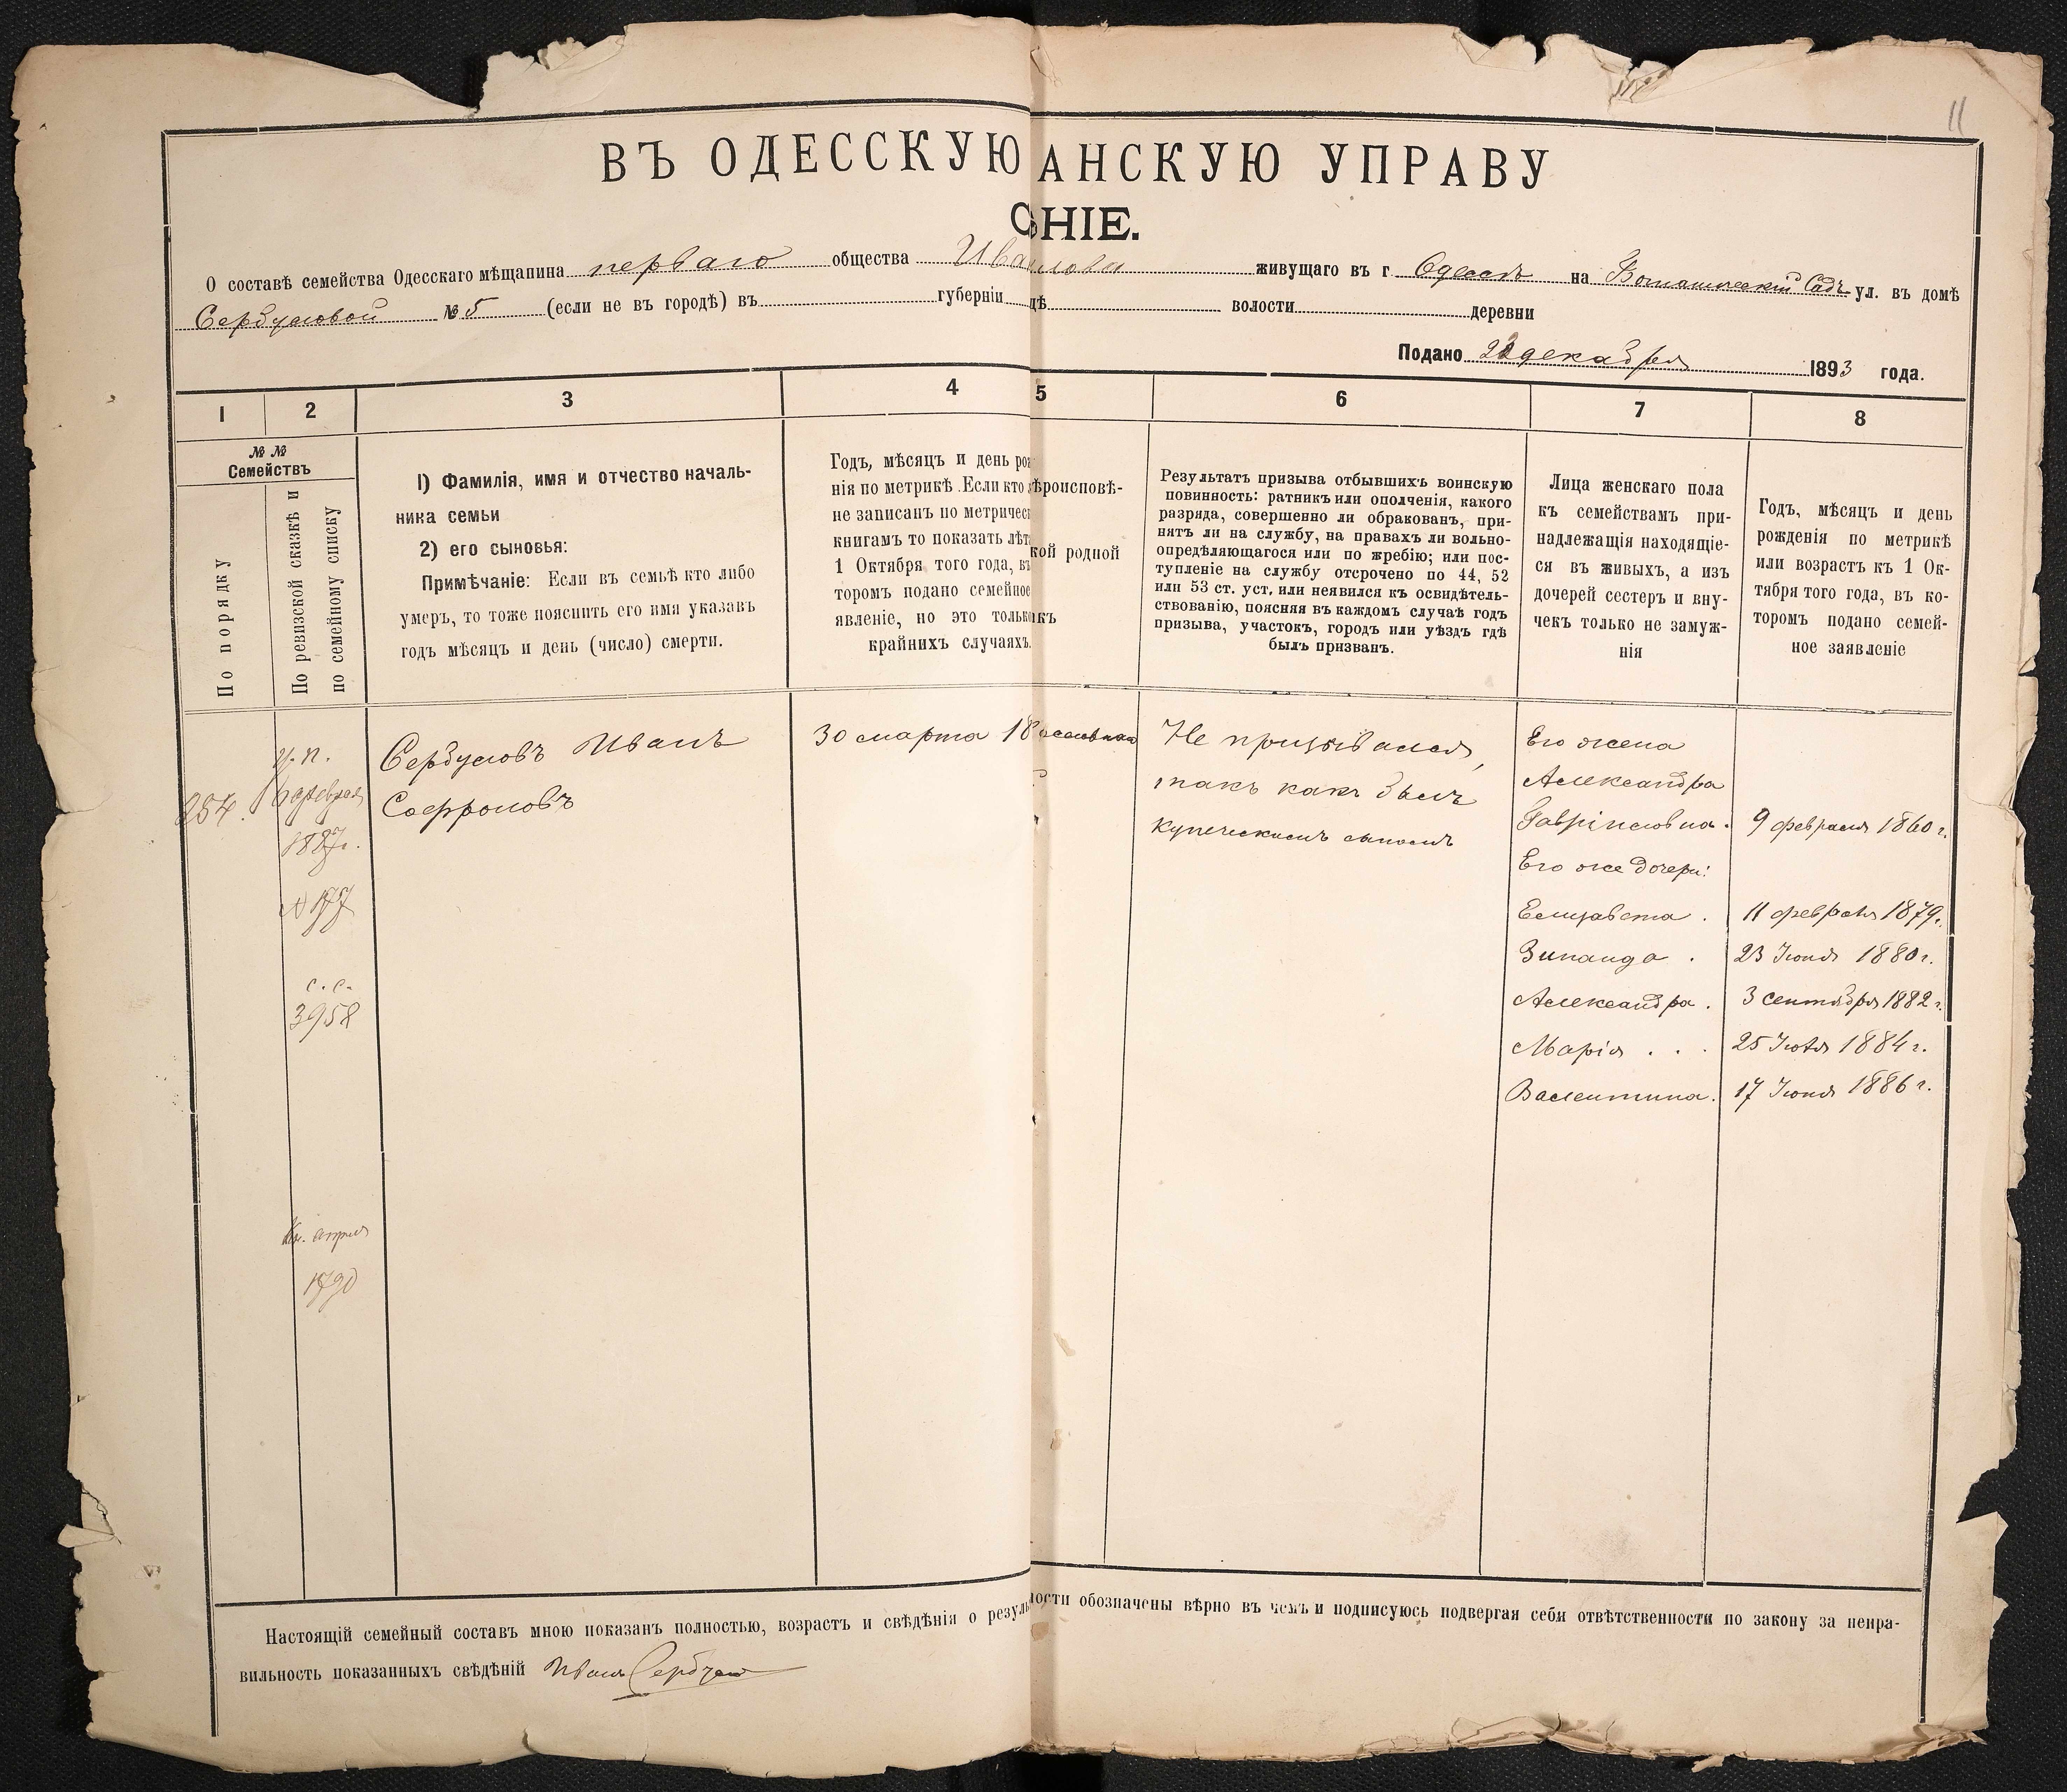 11
ВЪ ОДЕССКУЮ АНСКУЮ УПРАВУ
НІЕ.
О составѣ семейства Одесскаго мѣщанина перваго общества Ива живущаго въ г. Одессѣ на Ботаническій Садъ ул. въ домѣ
№ 5 (если не въ городѣ) въ губерніи дѣ волости деревни
Подано 22 декабря 1893 года.
1 2 3 4 5 6 7 8
№ №
Семействъ
По порядку
По ревизской сказкѣ и
по семейному списку
1) Фамилія, имя и отчество началь-
ника семьи
2) его сыновья:
Примѣчаніе: Если въ семьѣ кто либо
умеръ, то тоже пояснить его имя указавъ
годъ мѣсяцъ и день (число) смерти.
Годъ, мѣсяцъ и день рож
нія по метрикѣ. Если кто
не записанъ по метричес
книгамъ то показать лѣт
1 Октября того года, въ
торомъ подано семейное
явленіе, но это только
крайнихъ случаяхъ.
ѣроисповѣ-
кой родной
къ
Результатъ призыва отбывшихъ воинскую
повинность: ратникъ или ополченія, какого
разряда, совершенно ли обракованъ, при-
нятъ ли на службу, на правахъ ли вольно-
опредѣляющагося или по жребію; или пос-
тупленіе на службу отсрочено по 44, 52
или 53 ст. уст. или неявился къ освидѣтель-
ствованію, поясняя въ каждомъ случаѣ годъ
призыва, участокъ, городъ или уѣздъ гдѣ
былъ призванъ.
Лица женскаго пола
къ семействамъ при-
надлежащія находящіе-
ся въ живыхъ, а изъ
дочерей сестеръ и вну-
чекъ только не замуж-
нія
Годъ, мѣсяцъ и день
рожденія по метрикѣ
или возрастъ къ 1 Ок-
тября того года, въ ко-
торомъ подано семей-
ное заявленіе
254.
и. п.
6 февраля
1887 г.
N 177
с. с.
3958
апрѣля
Сербуловъ Иванъ
Софроновъ
30 марта 18
Не призывался,
такъ какъ былъ
купеческимъ сыномъ
Его жена
Александра
Гавріиловна. 9 февраля 1860 г.
Его же дочери:
Елизавета. 11 февраля 1879 г.
Зинаида. 23 Іюня 1880 г.
Александра. 3 сентября 1882 г.
Марія . . . 25 Іюля 1884 г.
Валентина. 17 Іюня 1886 г.
Настоящій семейный составъ мною показанъ полностью, возрастъ и свѣдѣнія о резуль ности обозначены вѣрно въ чемъ и подписуюсь подвергая себя отвѣтственности по закону за непра-
вильность показанныхъ свѣдѣній Иванъ